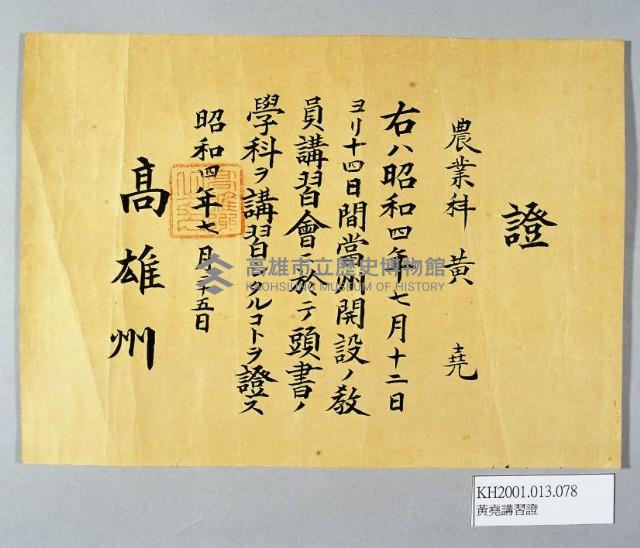 證
農業科 黄 堯
右ハ昭和四年七月十二日
ヨリ十四日間當州開設ノ教
員講習會ニ於テ頭書ノ
學科ヲ講習シタルコトヲ證ス
昭和四年七月
十五日
高雄州
高雄市立歷史博物館
KAOHSIUNG MUSEUM OF HISTORY
KH2001.013.078
黃堯講習證